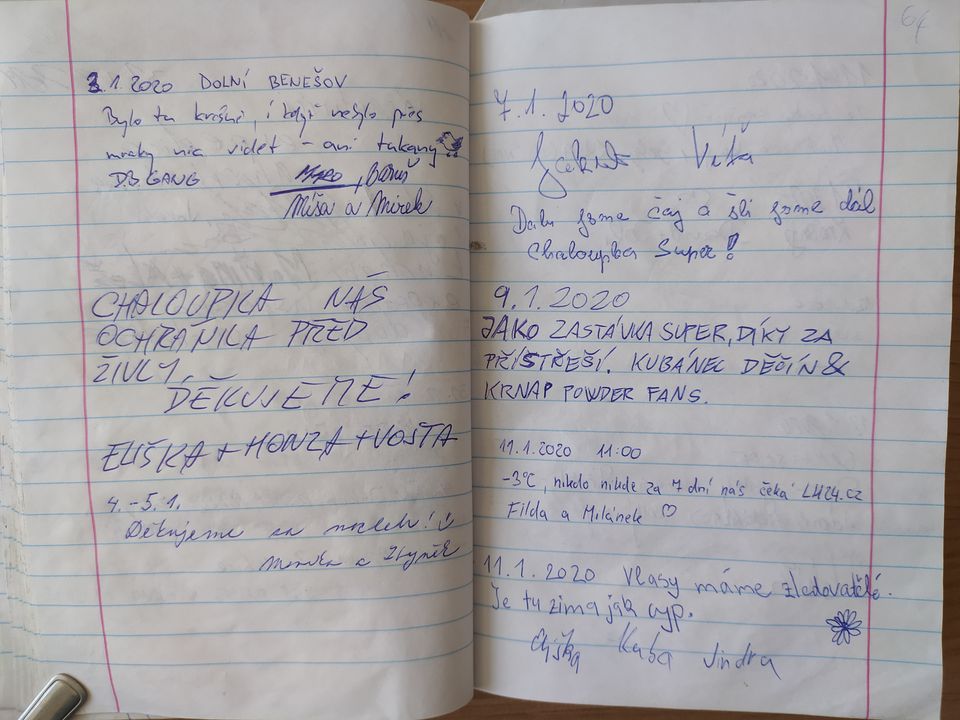 3.1.2020 DOLNÍ BENEŠOV
Bylo tu krásně, i když nešlo přes
mraky nic vidět - ani tukany
D.B. GANG
Míša a Mirek
CHALOUPKA NÁS
OCHRÁNILA PŘED
ŽIVLY.
DĚKUJEME!
ELIŠKA + HONZA + VOJTA
4.-5.1.
Děkujeme za nocleh!
a Zbyněk
64
7.1.2020
Víťa
Dali jsme čaj a šli jsme dál
Chaloupka Super!
9.1.2020
JAKO ZASTÁVKA SUPER, DÍKY ZA
PŘÍSTŘEŠÍ. KUBÁNEC DĚČÍN &
KRNAP POWDER FANS.
11.1.2020 11:00
-3°C, nikdo nikde za 7 dní nás čeká LH24.cz
Filda a Milánek ♡
11.1.2020 Vlasy máme zledovatělé.
Je tu zima jak vyp.
Eliška Kuba Jindra